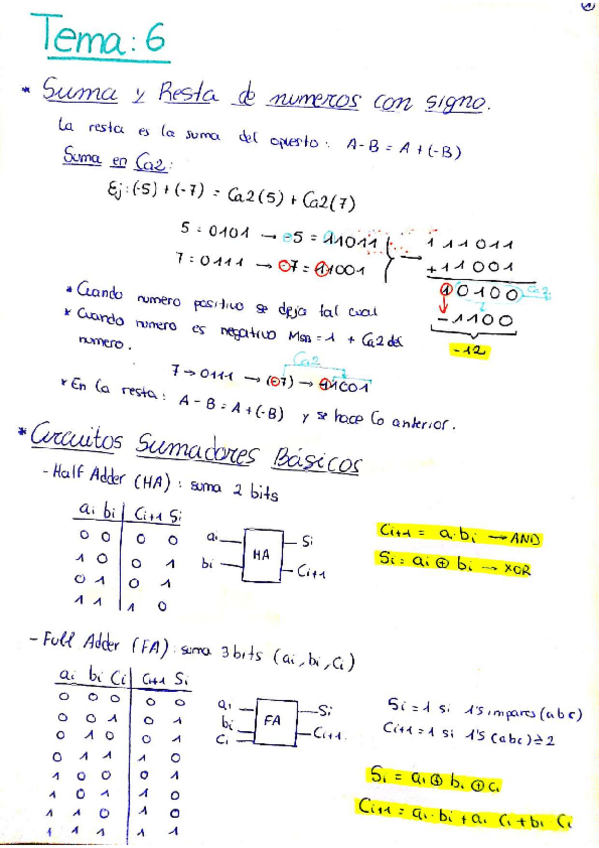 Tema: 6
* Suma y Resta de numeros con signo.
La resta es la suma del opuesto: A-B = A+(-B)
Suma en Ca2:
Ej: (-5) + (-7) = Ca2(5) + Ca2(7)
5 = 0101 → -5 = 11011
7 = 0111 → -7 = 11001
111011
+11001
10100 Ca2
-1100
-12
* Cuando numero positivo se deja tal cual
* Cuando numero es negativo MSB = 1 + Ca2 del
numero.
Ca2
7 → 0111 → (-7) → 11001
* En la resta: A-B = A+(-B) y se hace lo anterior.
* Circuitos Sumadores Básicos
- Half Adder (HA): suma 2 bits
ai bi Ci+1 Si
0 0 0 0
1 0 0 1
0 1 0 1
1 1 1 0
ai
bi
HA
Si
Ci+1
Ci+1 = a·bi → AND
Si = ai ⊕ bi → XOR
- Full Adder (FA): suma 3 bits (ai, bi, Ci)
ai bi Ci Ci+1 Si
0 0 0 0 0
0 0 1 0 1
0 1 0 0 1
0 1 1 1 0
1 0 0 0 1
1 0 1 1 0
1 1 0 1 0
1 1 1 1 1
ai
bi
Ci
FA
Si
Ci+1
Si = 1 si 1's impares (abc)
Ci+1 = 1 si 1's (abc) ≥ 2
Si = ai ⊕ bi ⊕ ci
Ci+1 = ai·bi + ai Ci + bi Ci